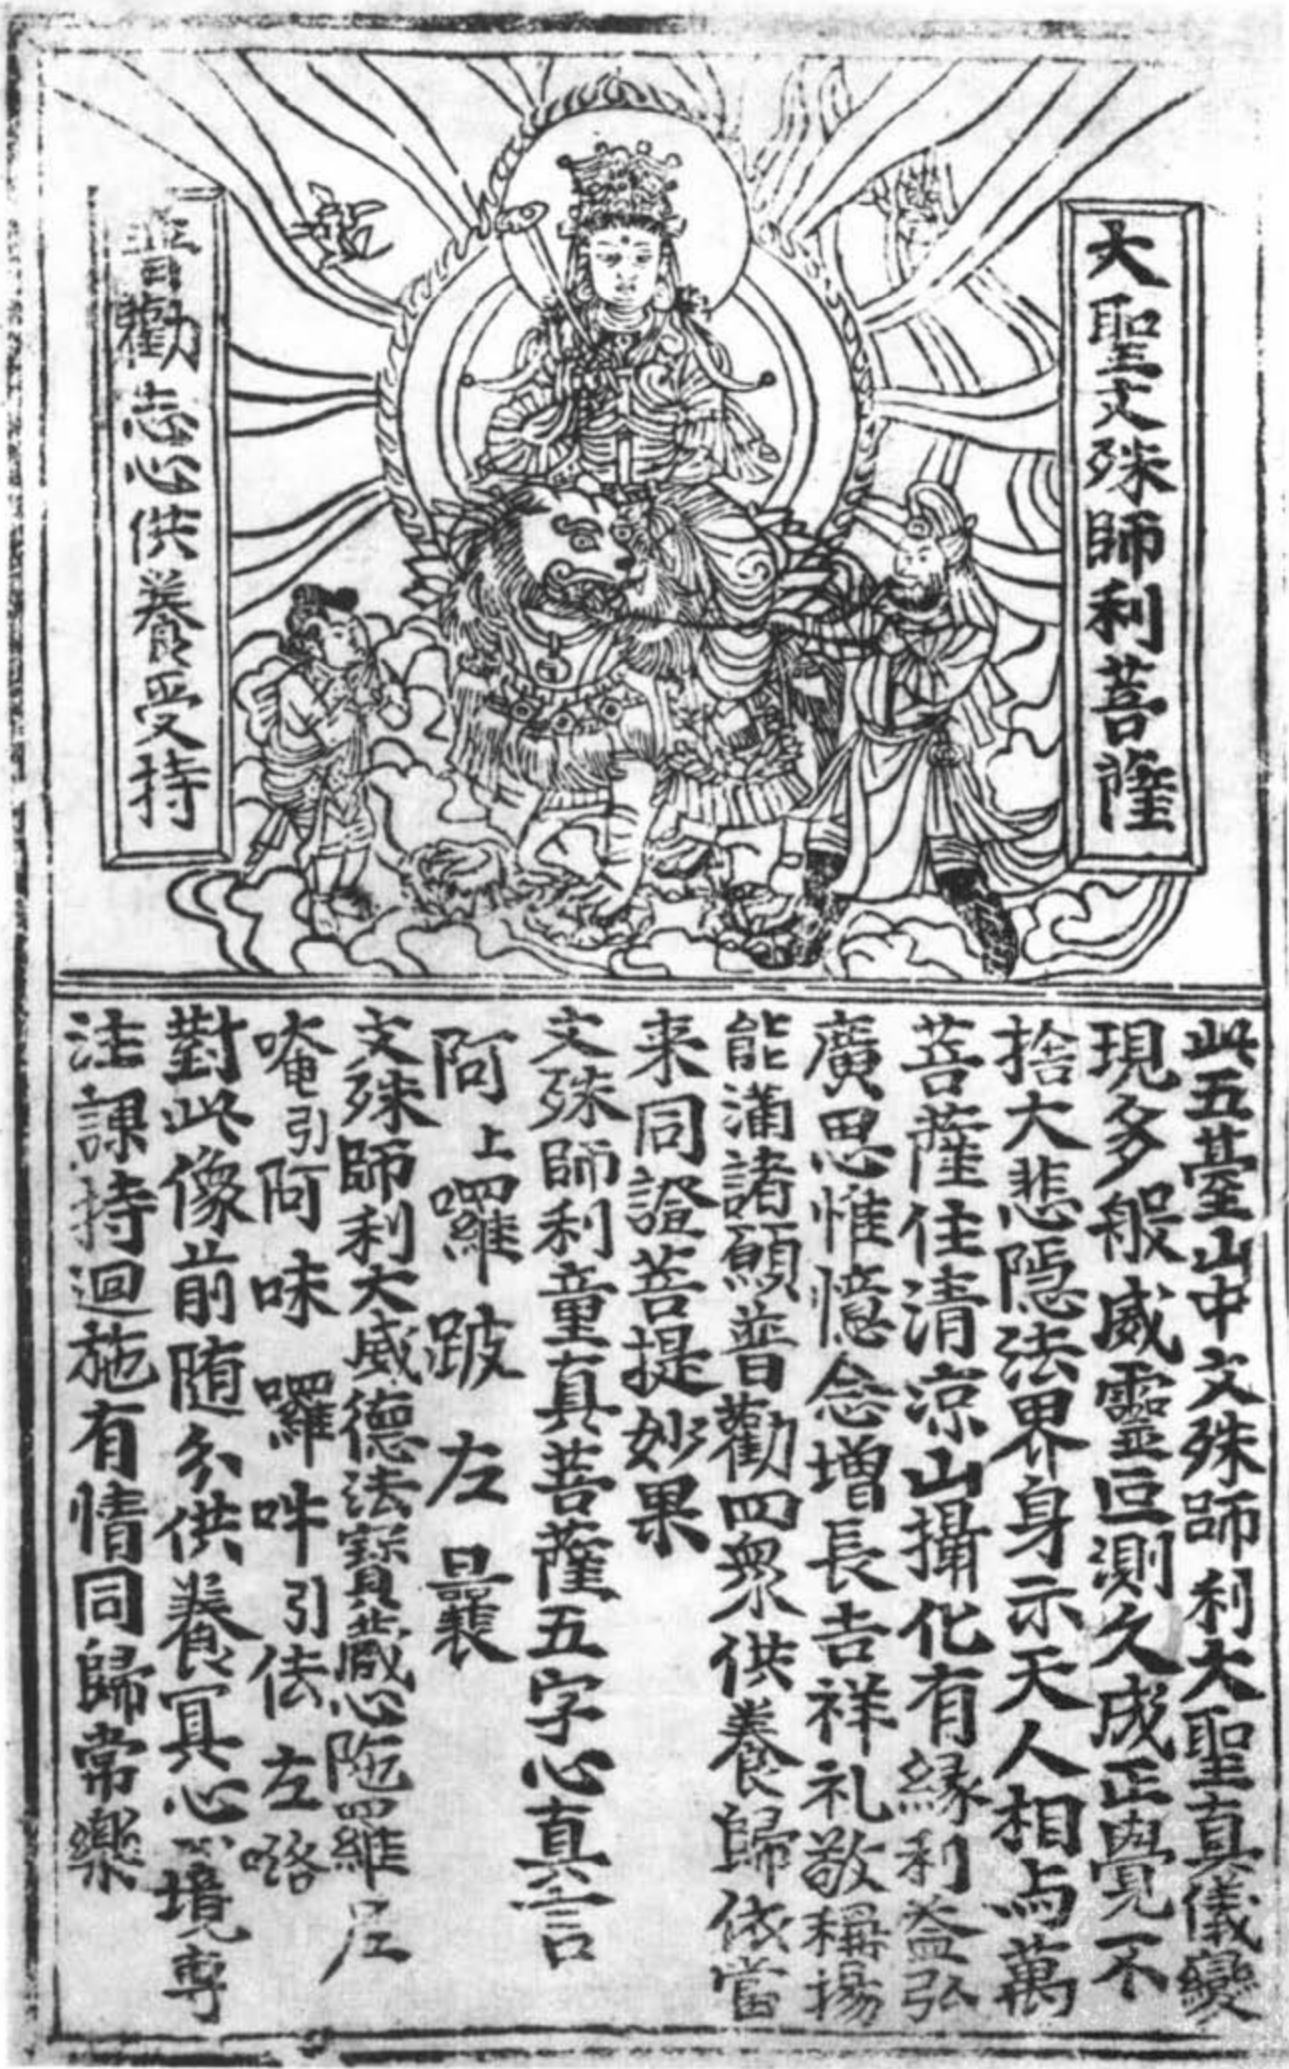 大聖文殊師利菩薩
普勸志心供養受持
此五臺山中文殊師利大聖真儀變
現多般威靈叵測久成正覺不
捨大悲隱法界身示天人相与萬
菩薩住清涼山攝化有緣利益弘
廣思惟憶念增長吉祥礼敬稱揚
能滿諸願普勸四衆供養歸依當
来同證菩提妙果
文殊師利童真菩薩五字心真言
阿上囉跛左曩
文殊師利大威德法寶藏心陁羅尼
唵引阿味囉吽引佉左咯
對此像前随分供養冥心一境專
注課持迴施有情同歸常樂